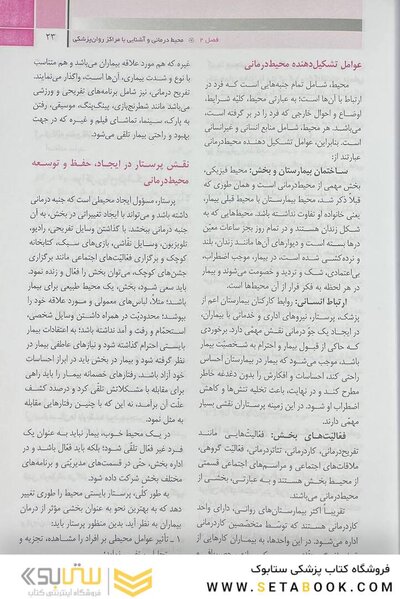 فصل ۲ محیط درمانی و آشنایی با مراکز روان‌پزشکی
۲۳
عوامل تشکیل‌دهنده محیط‌درمانی
محیط، شامل تمام جنبه‌هایی است که فرد در
ارتباط با آن‌ها است؛ به عبارتی محیط، کلیّه شرایط،
اوضاع و احوال خارجی که فرد را در بر گرفته است،
می‌باشد. هر محیط، شامل منابع انسانی و غیرانسانی
است. بنابراین، عوامل تشکیل‌دهنده محیط‌درمانی
عبارتند از:
ساختمان بیمارستان و بخش: محیط فیزیکی،
بخش مهمی از محیط‌درمانی است و همان طوری که
قبلاً ذکر شد، محیط بیمارستان با محیط قبلی بیمار،
یعنی خانواده او تفاوت نداشته باشد. محیط‌هایی که به
شکل زندان هستند و در تمام روز بجز ساعات معیّن
درها بسته است و دیوارهای آن‌ها مانند زندان، بلند
و نرده‌کشی شده است، در بیمار، موجب اضطراب،
بی‌اعتمادی، شک و تردید و خصومت می‌شوند و بیمار
در هر لحظه به فکر فرار از آن محیط‌ها است.
ارتباط انسانی: روابط کارکنان بیمارستان اعم از
پزشک، پرستار، نیروهای اداری و خدماتی با بیماران،
در ایجاد یک جوّ درمانی نقش مهمی دارد. برخوردی
که حاکی از قبول بیمار و احترام به شخصیّت بیمار
باشد، موجب می‌شود که بیمار در بیمارستان احساس
راحتی کند، احساسات و افکارش را بدون دغدغه خاطر
مطرح کند و در نهایت، باعث تخلیه تنش‌ها و کاهش
اضطراب او شود. در این زمینه پرستاران نقشی بسیار
مهم‌ی دارند.
فعالیّت‌های بخش: فعالیّت‌هایی مانند
تفریح‌درمانی، کاردرمانی، تئاتردرمانی، فعالیّت گروهی،
ملاقات‌های اجتماعی و مراسم‌های اجتماعی قسمتی
از محیط بخش هستند و به عبارتی، بخشی از
محیط‌درمانی می‌باشند.
تقریباً اکثر بیمارستان‌های روانی، دارای واحد
کاردرمانی هستند که توسط متخصّصین کاردرمانی
اداره می‌شود. در این واحدها، به بیماران کارهایی از
غیره که هم مورد علاقه بیماران می‌باشد و هم متناسب
با نوع و شدت بیماری آن‌ها است، واگذار می‌نمایند.
تفریح درمانی، نیز شامل برنامه‌های تفریحی و ورزشی
می‌باشد؛ مانند: شطرنج‌بازی، پینگ‌پنگ، موسیقی، رفتن
به پارک، سینما، تماشای فیلم و غیره که در جهت
بهبود و راحتی بیمار تلقی می‌شود.
نقش پرستار در ایجاد، حفظ و توسعه
محیط‌درمانی
پرستار، مسؤول ایجاد محیطی است که جنبه درمانی
داشته باشد و می‌تواند با ایجاد تغییراتی در بخش، به آن
جنبه درمانی ببخشد. با گذاشتن وسایل تفریحی، رادیو،
تلویزیون، وسایل نقّاشی، بازی‌های سبک، کتابخانه
کوچک و برگزاری فعالیّت‌های اجتماعی مانند برگزاری
جشن‌های کوچک، می‌توان بخش را فعّال و زنده نمود.
باید سعی شود، بخش، یک محیط طبیعی برای بیمار
باشد؛ مثلاً، لباس‌های معمولی و مورد علاقه خود را
بپوشد؛ محدودیّت در همراه داشتن وسایل شخصی،
استحمّام و رفت و آمد نداشته باشد؛ به اعتقادات بیمار
بایستی احترام گذاشته شود و نیازهای عاطفی بیمار در
نظر گرفته شود و بیمار در بخش باید در ابراز احساسات
خود آزاد باشد. رفتارهای خصمانه بیمار را باید راهی
برای مقابله با مشکلاتش تلقّی کرد و درصدد کشف
علت آن برآمد، نه این که با چنین رفتارهایی مقابله
به مثل نمود.
در یک محیط خوب، بیمار نباید به عنوان یک
فرد غیر فعّال تلقّی شود؛ بلکه باید فعّال باشد و در
اداره بخش، حتّی در قسمت‌های مدیریتی و برنامه‌های
مختلف بخش شرکت داده شود.
به طور کلّی، پرستار بایستی محیط را طوری تغییر
دهد که به بهترین نحو به عنوان بخشی مؤثر از درمان
بیماران به نظر آید. بدین منظور پرستار باید:
۱ ـ تأثیر عوامل محیطی بر افراد را مشاهده، تجزیه
فروشگاه کتاب پزشکی ستابوک
WWW.SETABOOK.COM
ستابوک
فروشگاه اینترنتی کتاب